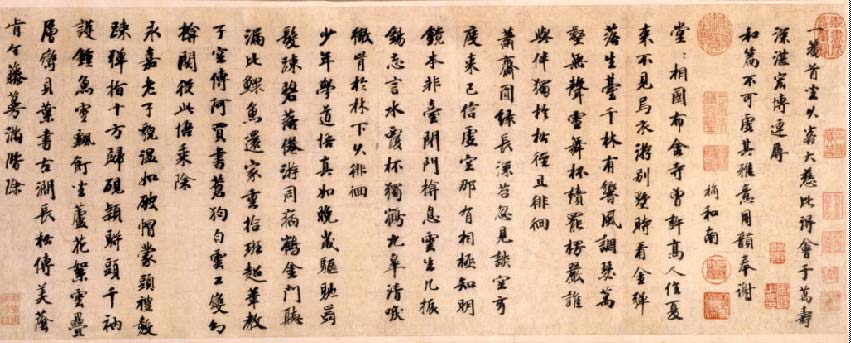 一菴首座以翁大慈比得會于萬壽
深湛宏博連辱
和篇不可虛其雅意用韻奉謝
楠和南
堂堂相國布金寺曾軒高人住夏
來不見烏衣游別墅時看金錫
落生臺千林有響風調瑟萬
壑無聲雪舞杯積罷楞嚴誰
與伴獨於松徑且徘徊
蕭齋閒鎖長深苔忽見談空有
度來已信虛空那有相極知明
鏡本非臺閉門榻息雲生几振
錫忘言水覆杯獨鶴九皋清唳
徹肯於林下久徘徊
少年學道悟真如晚歲驅馳齒
髮疎碧落倦游同病鶴金門聽
漏比鰥魚還家重拾班超筆教
子空傳阿買書蒼狗白雲工變幻
掩關從此悟乘除
永嘉老子貌温如破帽蒙頭禮數
疎彈指十方歸硯穎駢頭千衲
護鍾魚雪飄坐蘆花絮雲疊
層齋貝葉書古澗長松傳美蔭
肯分藤蔓滿階除